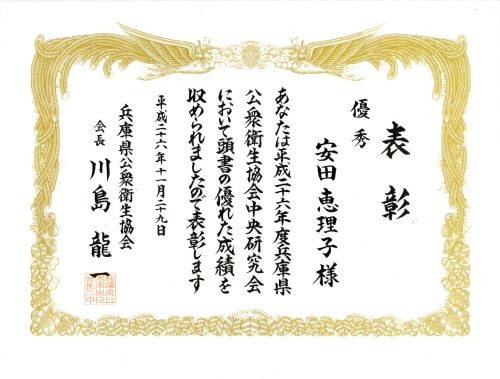 表彰
優秀
安田恵理子様
あなたは平成二十六年度兵庫県
公衆衛生協会中央研究会
において頭書の優れた成績を
収められましたので表彰します
平成二十六年十一月二十九日
兵庫県公衆衛生協会
会長 川島龍一